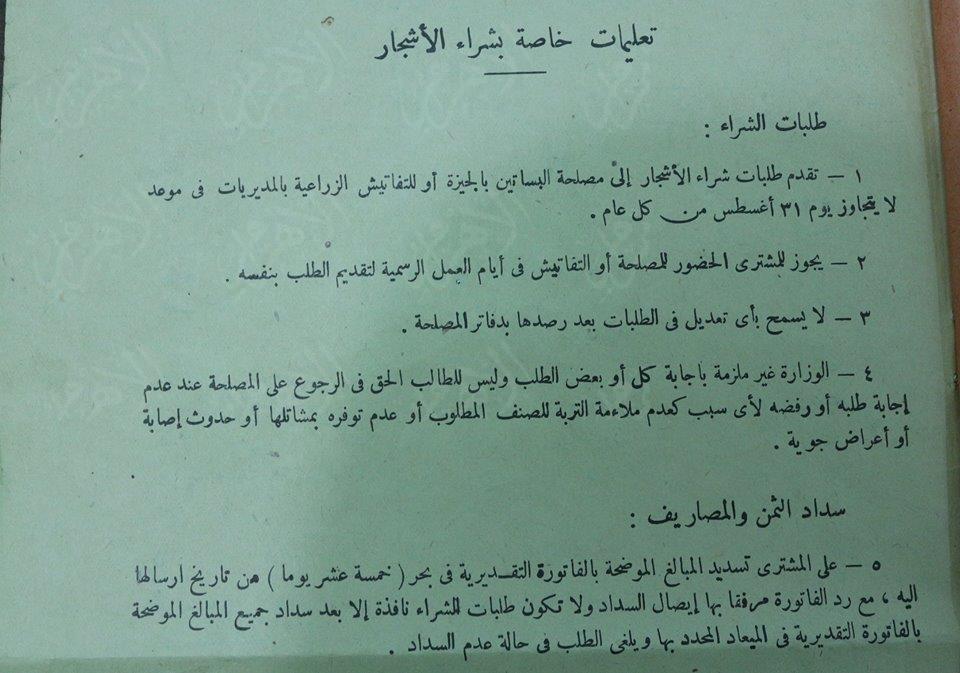 تعليمات خاصة بشراء الأشجار
طلبات الشراء :
١ — تقدم طلبات شراء الأشجار إلى مصلحة البساتين بالجيزة أو للتفاتيش الزراعية بالمديريات فى موعد
لا يتجاوز يوم ٣١ أغسطس من كل عام .
٢ — يجوز للمشترى الحضور للمصلحة أو التفاتيش فى أيام العمل الرسمية لتقديم الطلب بنفسه .
٣ — لا يسمح بأى تعديل فى الطلبات بعد رصدها بدفاتر المصلحة .
٤ — الوزارة غير ملزمة باجابة كل أو بعض الطلب وليس للطالب الحق فى الرجوع على المصلحة عند عدم
إجابة طلبه أو رفضه لأى سبب كعدم ملاءمة التربة للصنف المطلوب أو عدم توفره بمشاتلها أو حدوث إصابة
أو أعراض جوية .
سداد الثمن والمصاريف :
٥ — على المشترى تسديد المبالغ الموضحة بالفاتورة التقديرية فى بحر ( خمسة عشر يوما ) من تاريخ ارسالها
اليه ، مع رد الفاتورة مرفقا بها إيصال السداد ولا تكون طلبات الشراء نافذة إلا بعد سداد جميع المبالغ الموضحة
بالفاتورة التقديرية فى الميعاد المحدد بها ويلغى الطلب فى حالة عدم السداد .